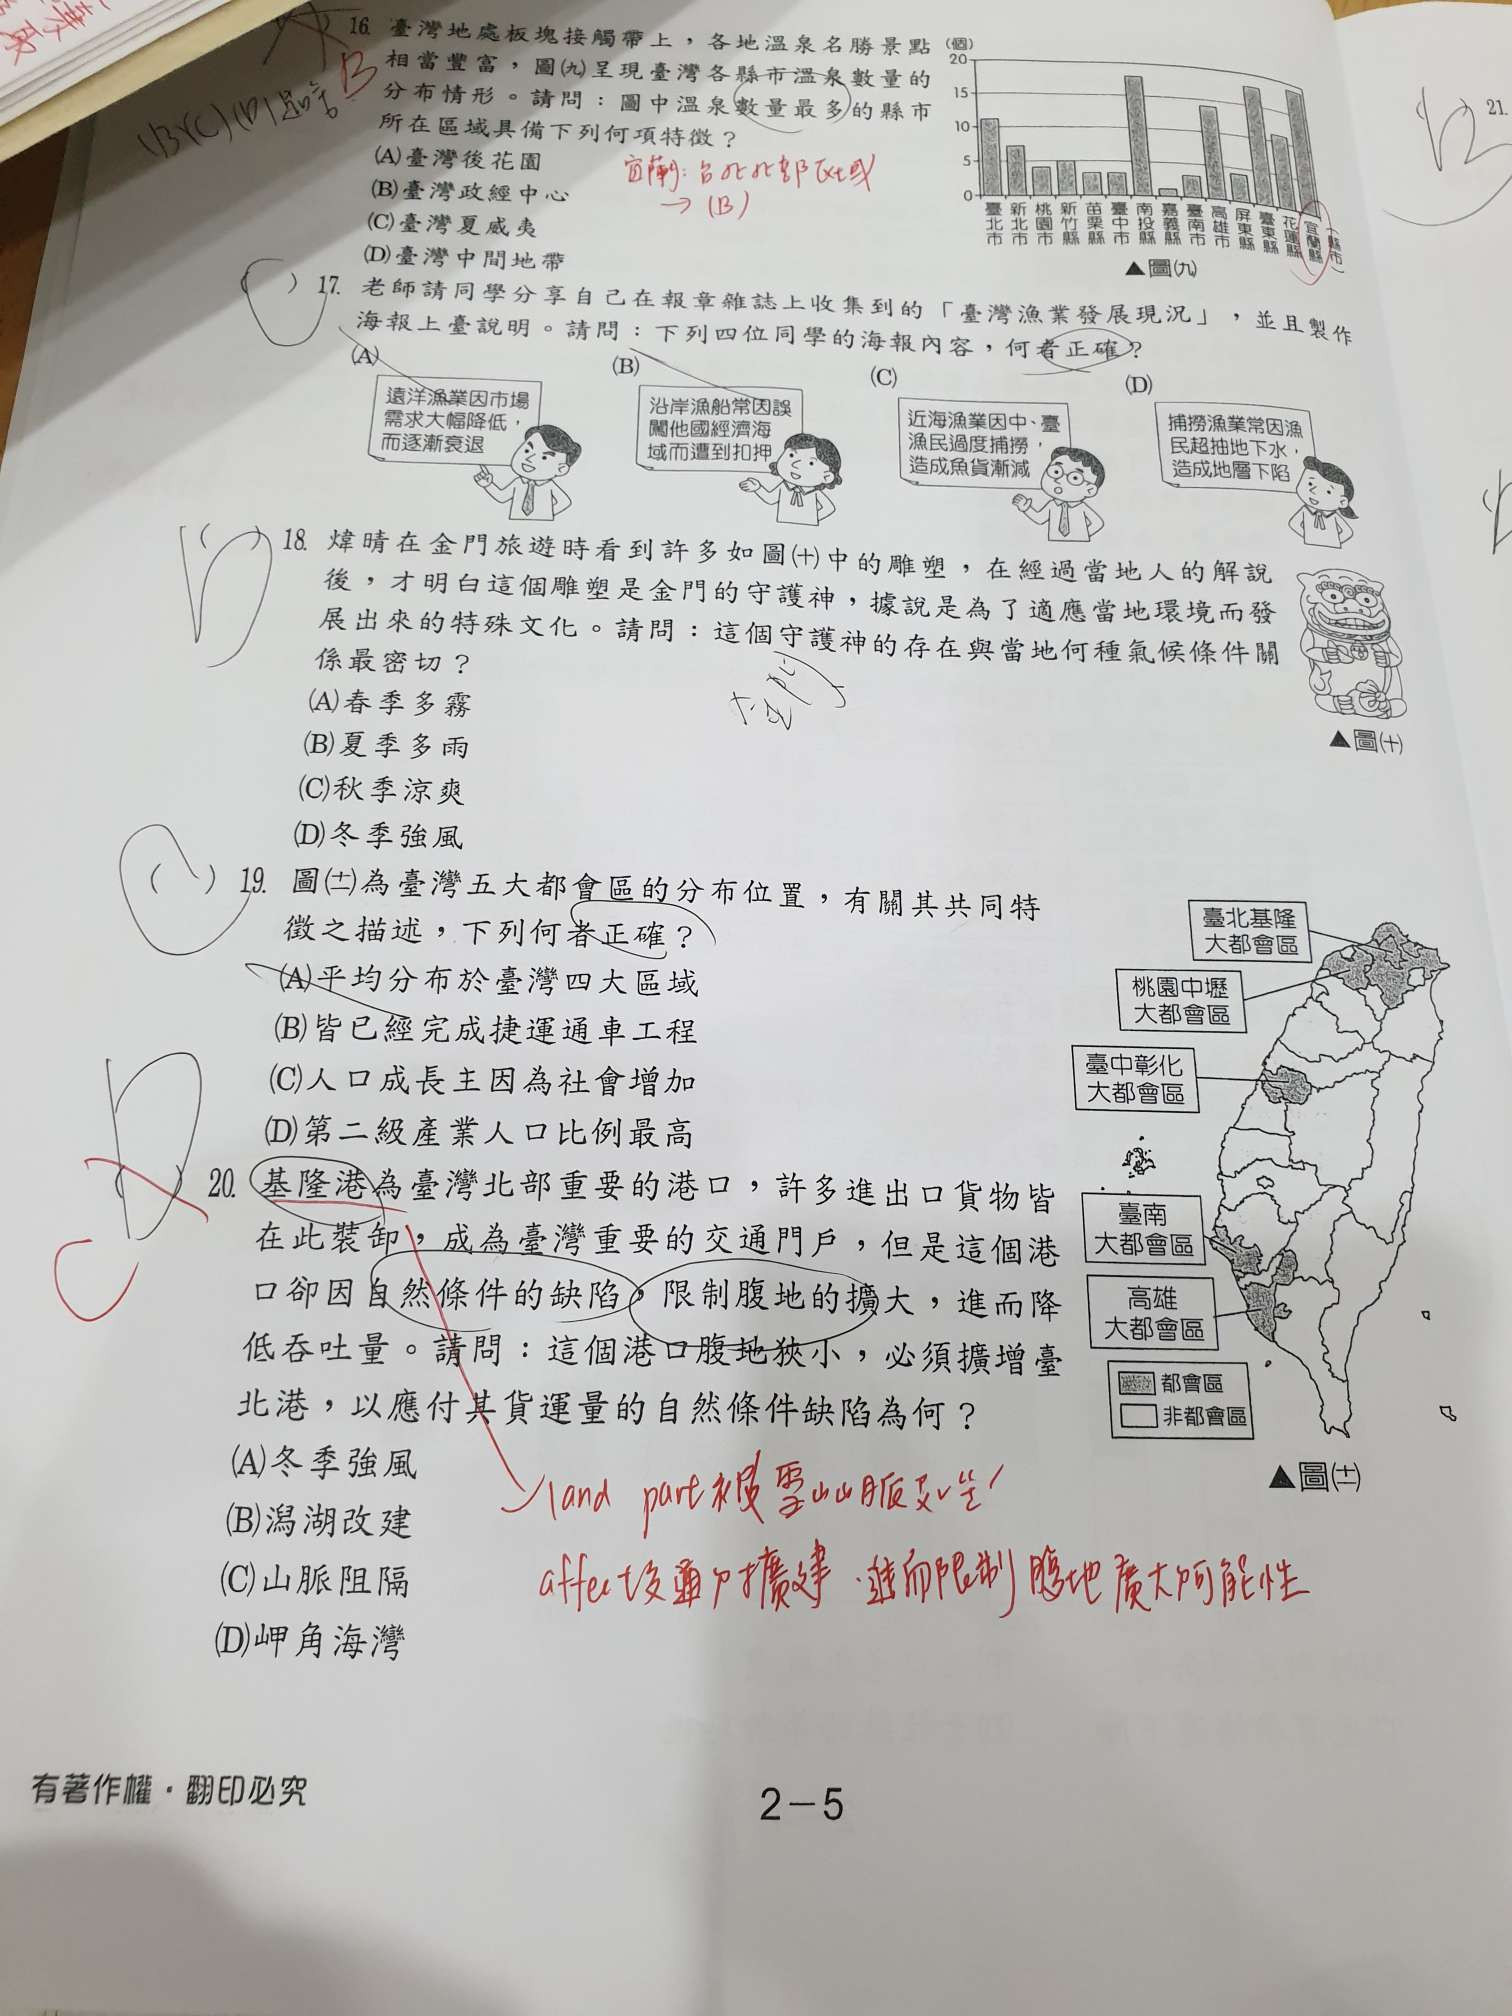 16. 臺灣地處板塊接觸帶上，各地溫泉名勝景點
相當豐富，圖㈨呈現臺灣各縣市溫泉數量的
分布情形。請問：圖中溫泉數量最多的縣市
所在區域具備下列何項特徵？
(A)臺灣後花園
(B)臺灣政經中心
(C)臺灣夏威夷
(D)臺灣中間地帶
B
宜蘭: 台北北部區域
→ (B)
(個)
20
15
10
5
0
臺北市
新北市
桃園市
新竹縣
苗栗縣
臺中市
南投縣
嘉義縣
臺南市
高雄市
屏東縣
臺東縣
花蓮縣
宜蘭縣
(縣市)
▲圖㈨
( ) 17. 老師請同學分享自己在報章雜誌上收集到的「臺灣漁業發展現況」，並且製作
海報上臺說明。請問：下列四位同學的海報內容，何者正確？
C
(A)
遠洋漁業因市場
需求大幅降低，
而逐漸衰退
(B)
沿岸漁船常因誤
闖他國經濟海
域而遭到扣押
(C)
近海漁業因中、臺
漁民過度捕撈，
造成魚貨漸減
(D)
捕撈漁業常因漁
民超抽地下水，
造成地層下陷
( ) 18. 煒晴在金門旅遊時看到許多如圖㈩中的雕塑，在經過當地人的解說
後，才明白這個雕塑是金門的守護神，據說是為了適應當地環境而發
展出來的特殊文化。請問：這個守護神的存在與當地何種氣候條件關
係最密切？
D
金門
(A)春季多霧
(B)夏季多雨
(C)秋季涼爽
(D)冬季強風
▲圖㈩
( ) 19. 圖(十一)為臺灣五大都會區的分布位置，有關其共同特
徵之描述，下列何者正確？
C
(A)平均分布於臺灣四大區域
(B)皆已經完成捷運通車工程
(C)人口成長主因為社會增加
(D)第二級產業人口比例最高
臺北基隆
大都會區
桃園中壢
大都會區
臺中彰化
大都會區
臺南
大都會區
高雄
大都會區
都會區
非都會區
▲圖(十一)
( ) 20. 基隆港為臺灣北部重要的港口，許多進出口貨物皆
在此裝卸，成為臺灣重要的交通門戶，但是這個港
口卻因自然條件的缺陷，限制腹地的擴大，進而降
低吞吐量。請問：這個港口腹地狹小，必須擴增臺
北港，以應付其貨運量的自然條件缺陷為何？
D
C
(A)冬季強風
(B)潟湖改建
(C)山脈阻隔
(D)岬角海灣
land part 被雪山山脈
affect 交通 擴建，進而限制腹地廣大可能性
有著作權・翻印必究
2－5
21.